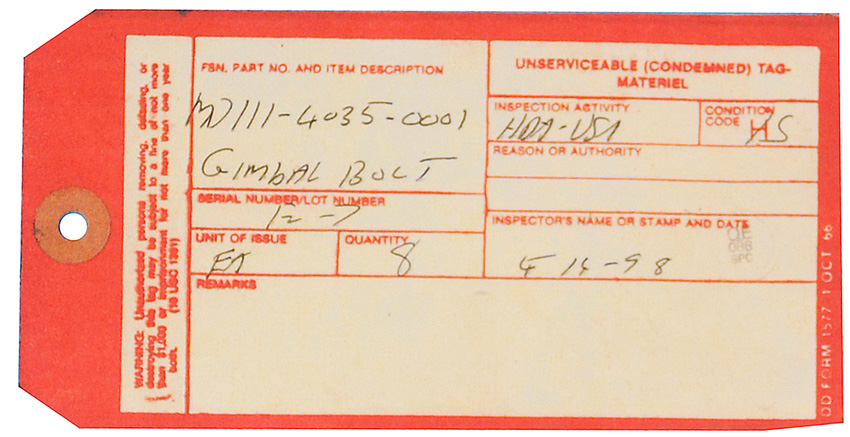 FSN, PART NO. AND ITEM DESCRIPTION
MD111-4035-0001
GIMBAL BOLT
SERIAL NUMBER/LOT NUMBER
12-7
UNIT OF ISSUE
EA
QUANTITY
8
REMARKS
UNSERVICEABLE (CONDEMNED) TAG-
MATERIEL
INSPECTION ACTIVITY
HDA-USA
CONDITION
CODE H
REASON OR AUTHORITY
INSPECTOR'S NAME OR STAMP AND DATE
4 14-98
WARNING: Unauthorized persons removing, defacing, or
destroying this tag may be subject to a fine of not more
than $1,000 or imprisonment for not more than one year
both.
(18 USC 1361)
DD FORM 1577, 1 OCT 66